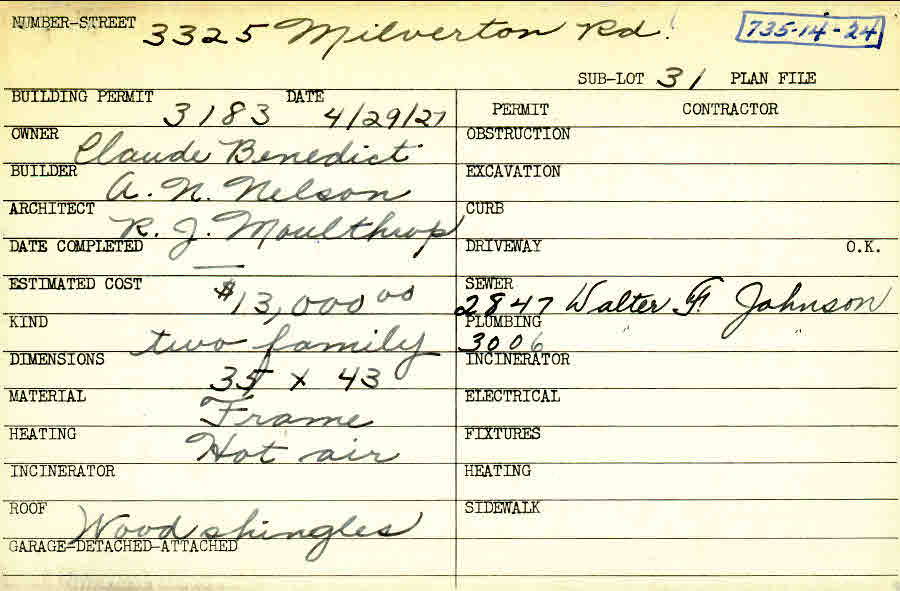 NUMBER-STREET 3325 Milverton Rd. 735-14-24
SUB-LOT 31 PLAN FILE
BUILDING PERMIT 3183 DATE 4/29/27
PERMIT CONTRACTOR
OWNER Claude Benedict
OBSTRUCTION
BUILDER A. N. Nelson
EXCAVATION
ARCHITECT R. J. Moulthrop
CURB
DATE COMPLETED —
DRIVEWAY O.K.
ESTIMATED COST $13,000 00
SEWER 2847 Walter F. Johnson
KIND two family
PLUMBING 3006 " "
DIMENSIONS 35 x 43
INCINERATOR
MATERIAL Frame
ELECTRICAL
HEATING Hot air
FIXTURES
INCINERATOR
HEATING
ROOF Wood shingles
SIDEWALK
GARAGE-DETACHED-ATTACHED